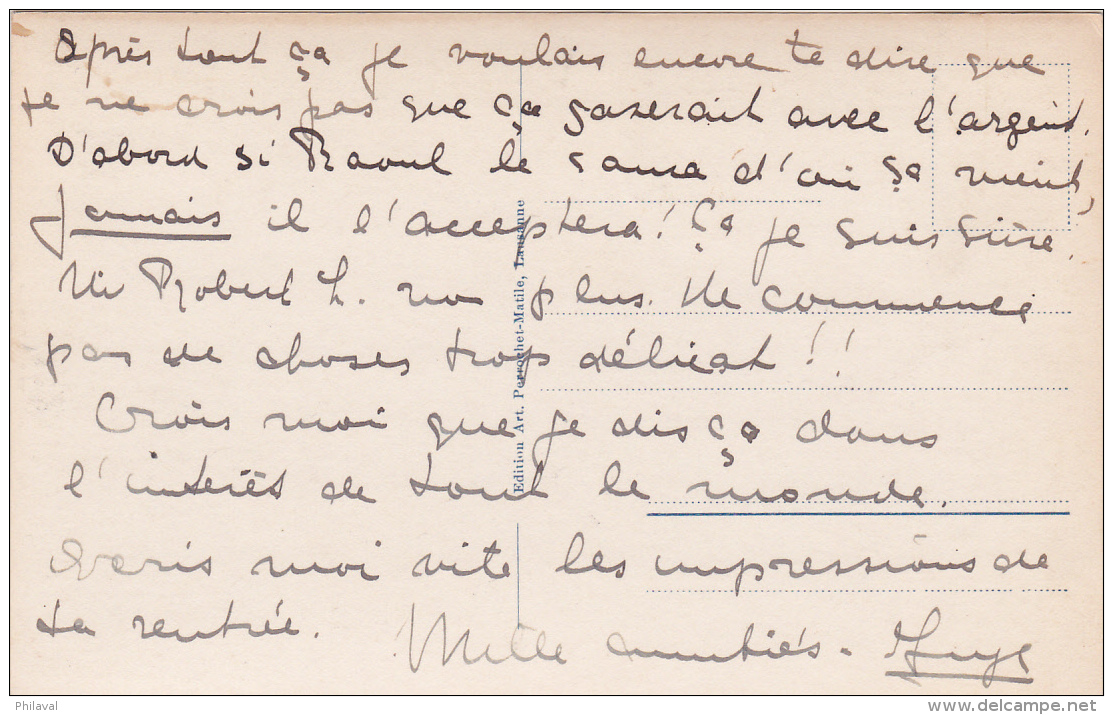 Après tout ça je voulais encore te dire que
je ne crois pas que ça gazerait avec l'argent.
D'abord si Raoul le saura d'où ça vient,
Jamais il l'acceptera! Ça je suis sûre.
Ni Robert L. non plus. Ne commence
pas de choses trop délicat!!
Crois moi que je dis ça dans
l'interêt de tout le monde.
Ecris moi vite les impressions de
ta rentrée. Mille amitiés -
Edition Art. Perrochet-Matile, Lausanne
Philaval
www.delcampe.net